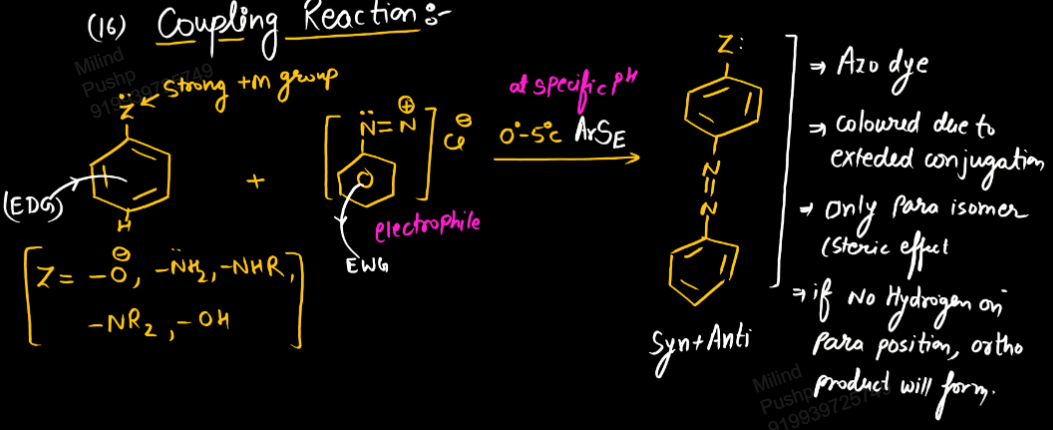 (16) Coupling Reaction :-
Milind
Pushp
Z̈ ← strong +m group
(EDG)
H
+
[N̈=N⊕] Cl⊖
electrophile
EWG
at specific pH
0°-5°c ArSE
Z:
N
||
N
Syn+Anti
⇒ Azo dye
⇒ coloured due to
exteded conjugation
→ Only para isomer
(Steric effect
⇒ if No Hydrogen on
para position, ortho
product will form.
[Z= -O⊖, -N̈H2, -NHR,
-NR2, -OH]
Milind
Pushp